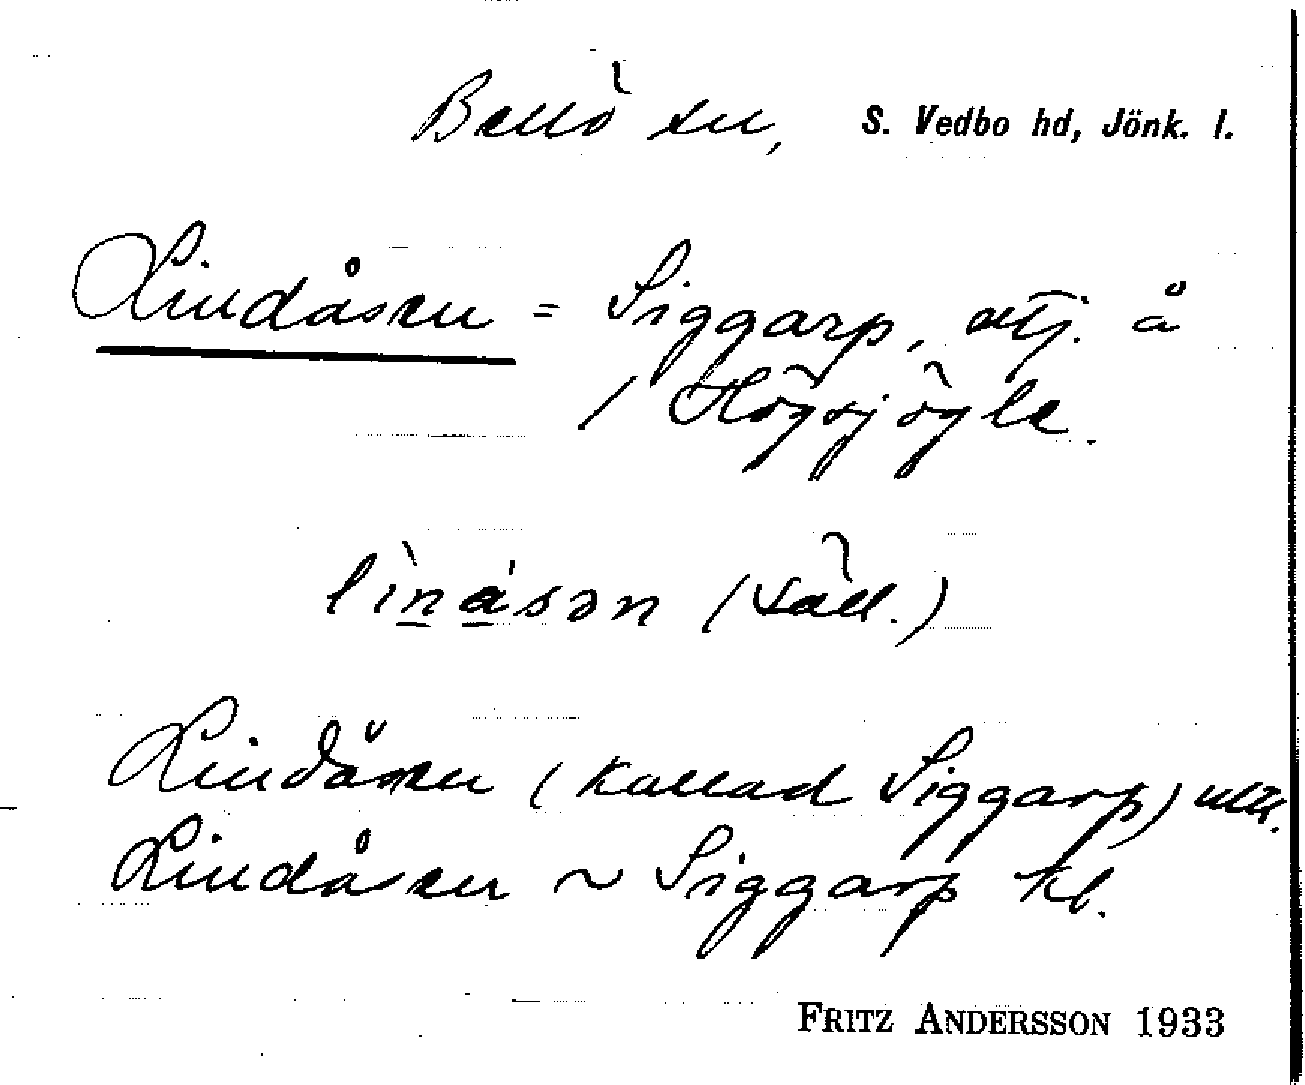 Bellö sn, S. Vedbo hd, Jönk. l.
Lindåsen = Siggarp, avsj. å
/ Högsjögle.
lìnásən (säll.)
Lindåsen (kallad Siggarp)
Lindåsen ~ Siggarp kl.
FRITZ ANDERSSON 1933